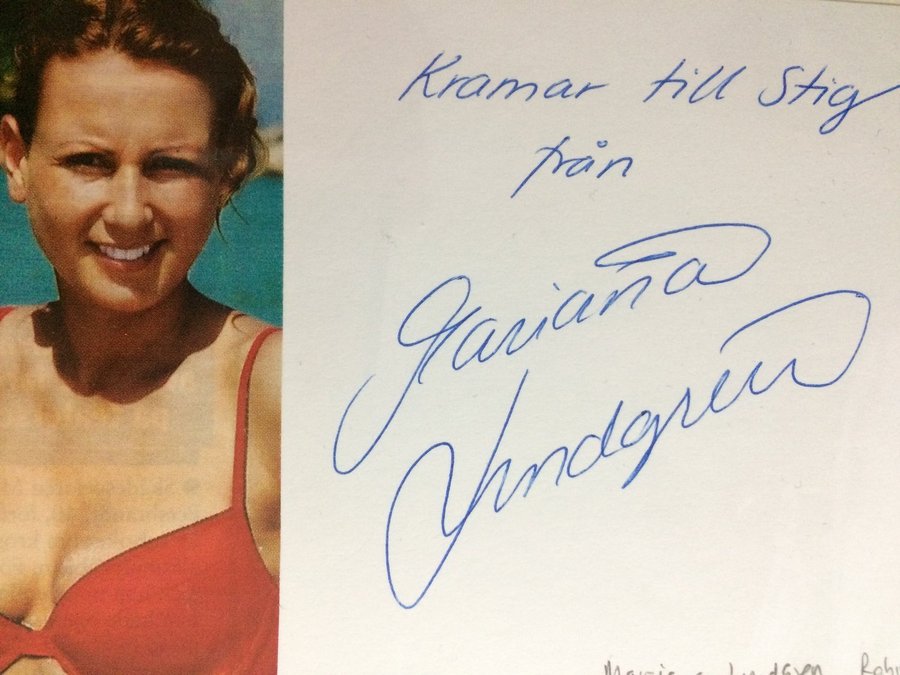 Kramar till Stig
från
Mariana
Lundgren
Mariana Lundgren